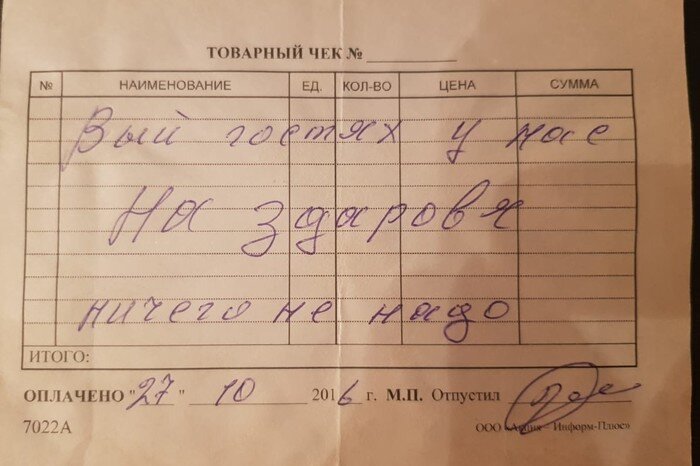 ТОВАРНЫЙ ЧЕК №
№ НАИМЕНОВАНИЕ ЕД. КОЛ-ВО ЦЕНА СУММА
Вый гостях у нас
На здаровя
ничего не надо
ИТОГО:
ОПЛАЧЕНО "27" 10 2016 г. М.П. Отпустил
7022А ООО «Акция – Информ-Плюс»